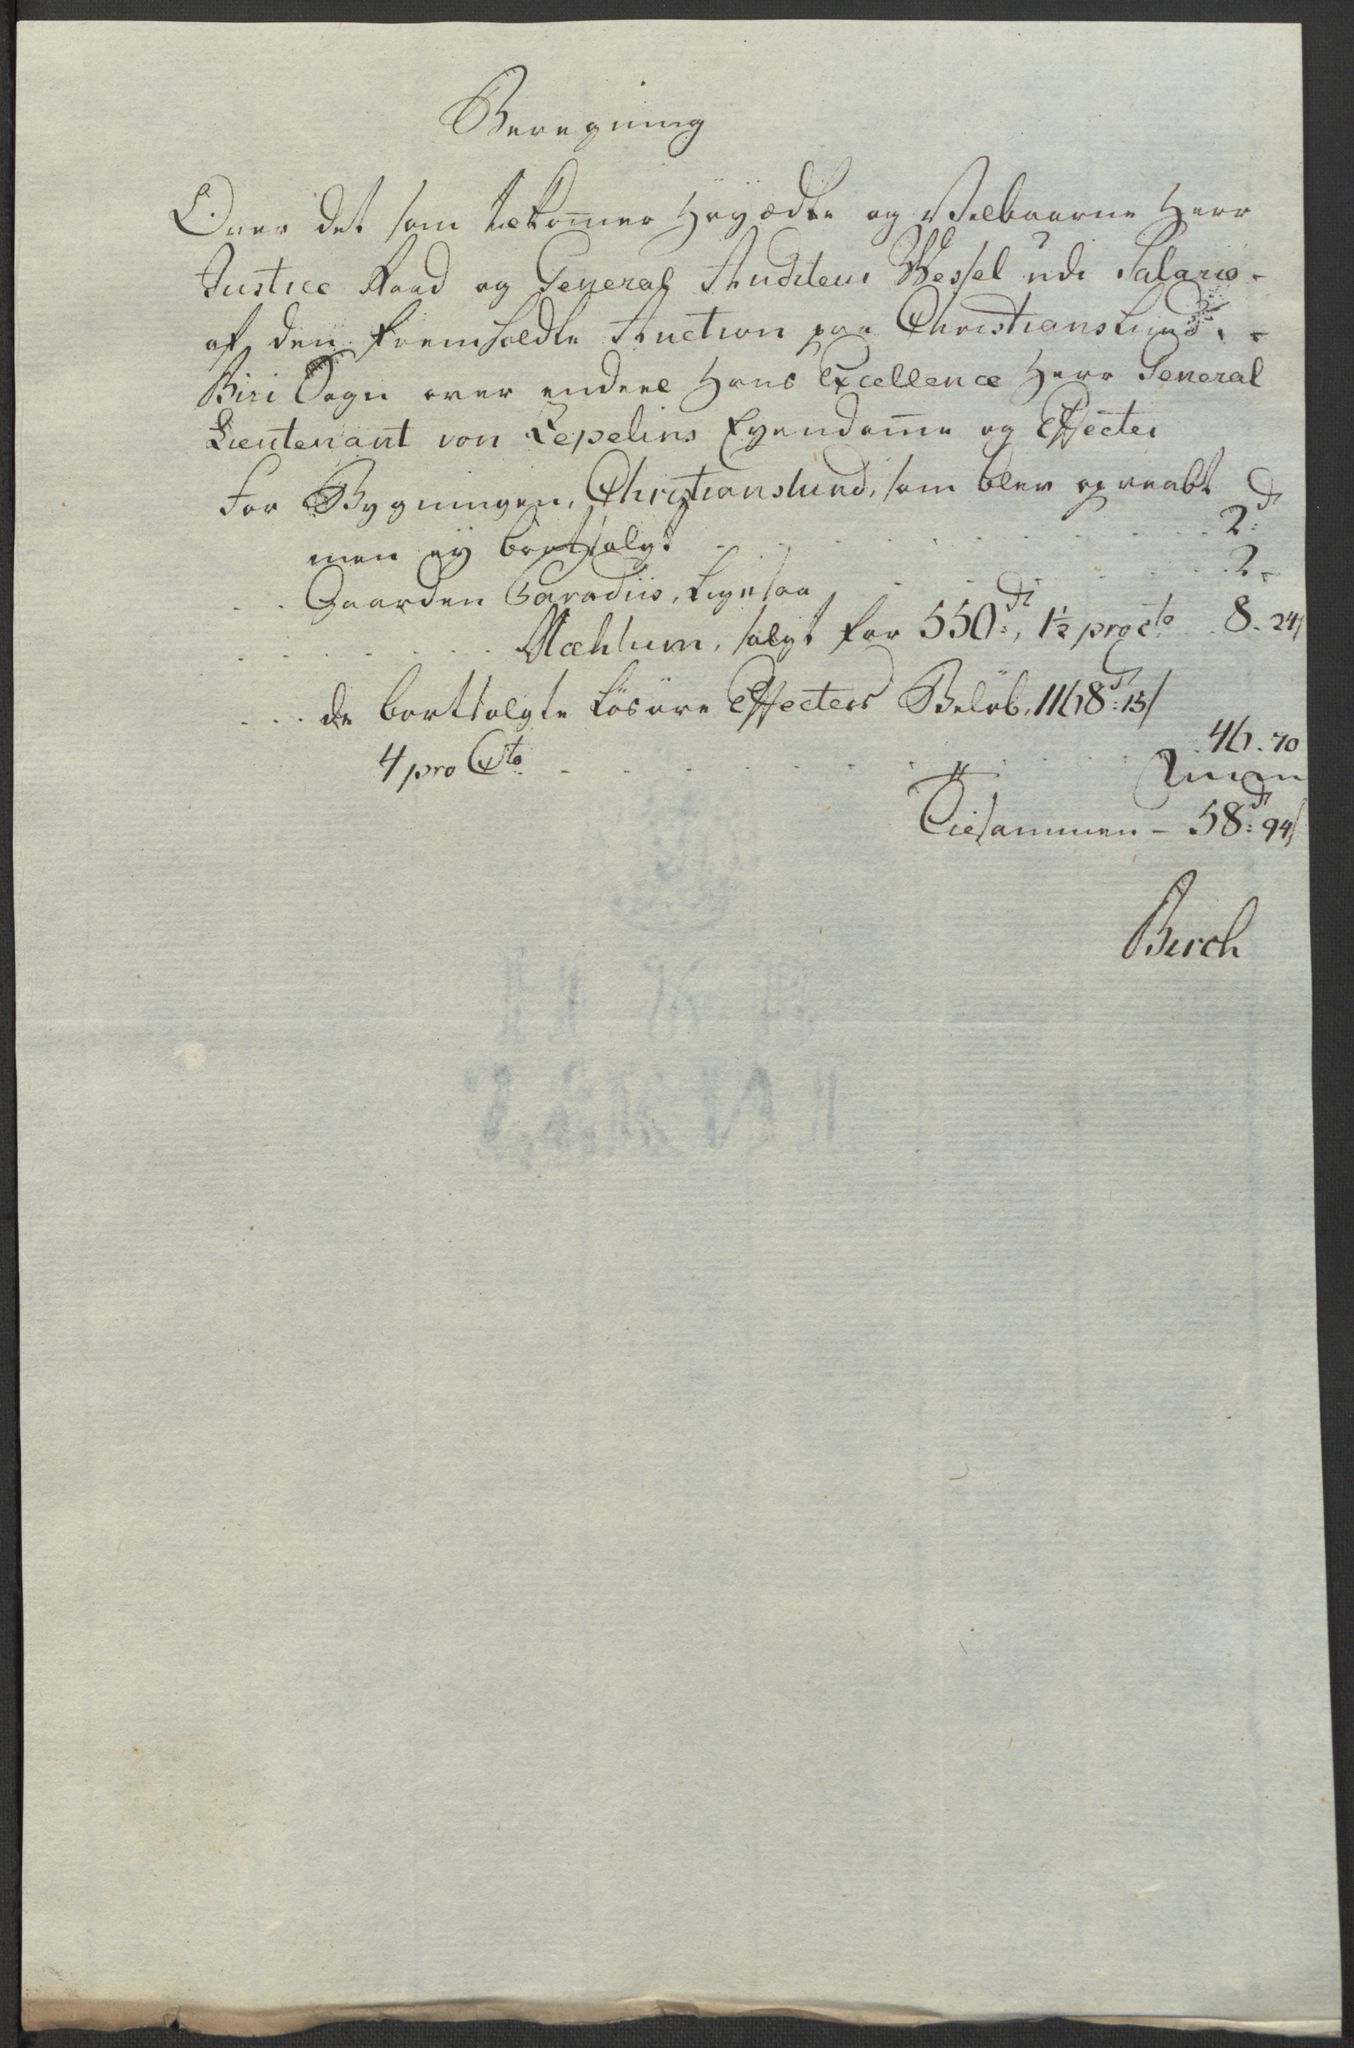 Beregning
Over det som tilkom̅er Høyædle og Velbaarne Herr
Justice Raad og General Auditeur Wessel udi Salario
af den fremholdte Auction paa Christianslund,
Biri Sogn over endeel Hans Excellence Herr General
Lieutenant von Zepelins Eyendom̅e og Effecter
for Bygningen, Christianslund, som blev opraabt
men ey bortsolgt . . . . . . . . 2 rd:
. . Gaarden Paradiis, ligesaa . . . . . 2 -
. . . . . . Mæhlum, solgt for 550 rd:, 1½ pro Cto . 8 - 24 s
. . . de bortsolgte Løsøre Effecters Beløb, 1168 rd: 15 s
4 pro Cto . . . . . . . . 46 - 70
Tilsammen - 58 rd: 94 s
Birch